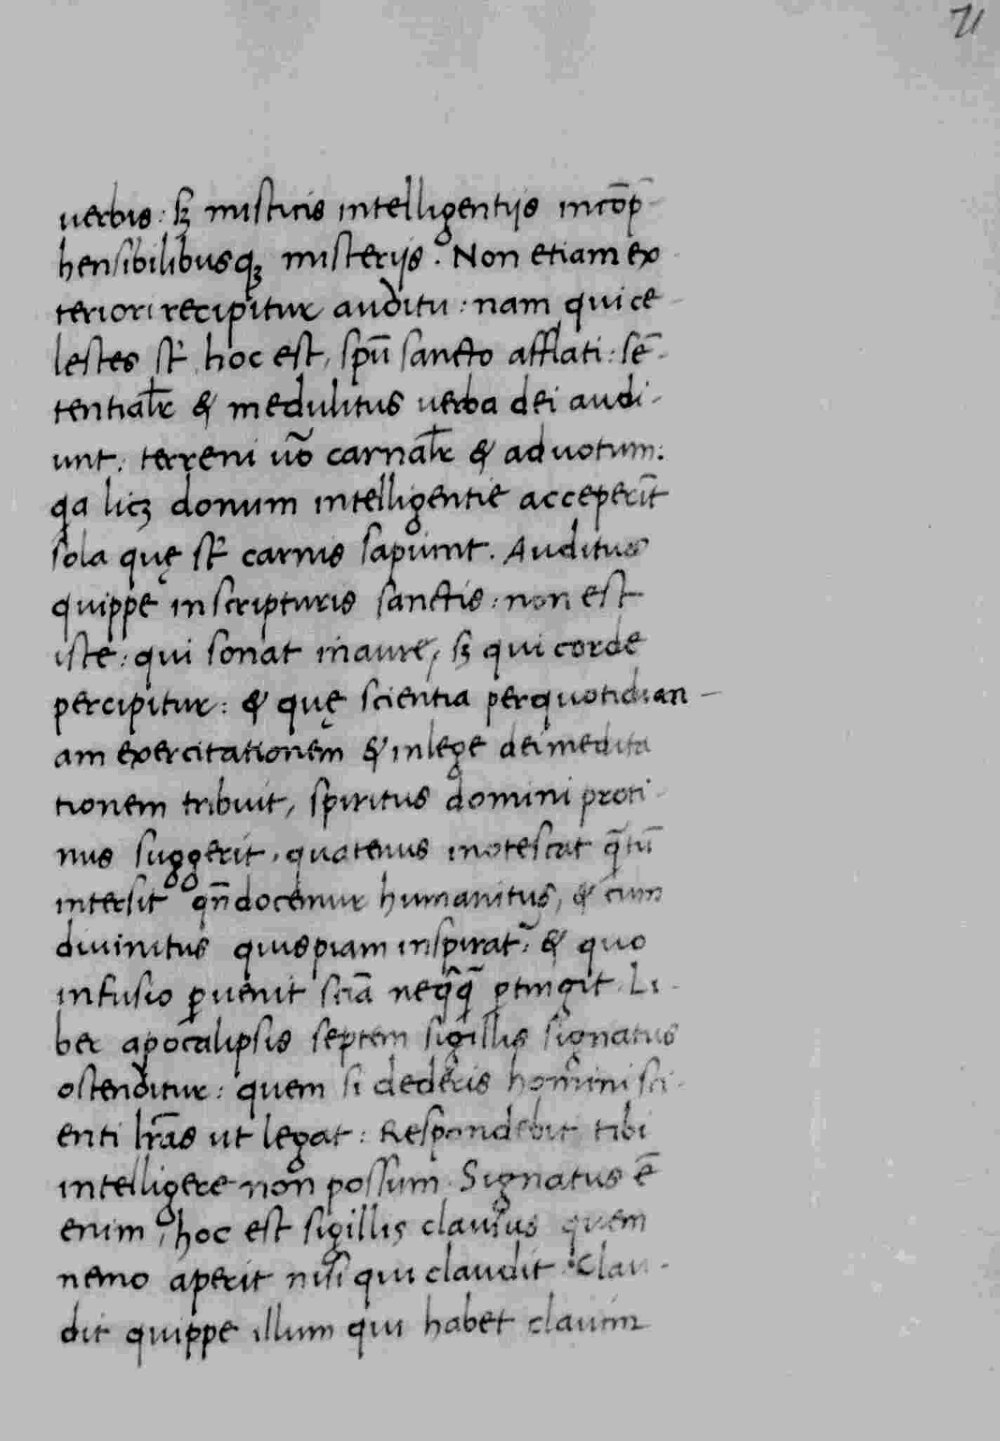 71
uerbis: sꝫ misticis intelligentijs incōp̄
hensibilibusqꝫ misterijs. Non etiam ex
teriori recipitur auditu: nam qui ce
lestes st̄ hoc est, spū sancto afflati: sē-
tentialr̄ & medulitus uerba dei audi-
unt. terreni uō carnalr̄ & ad uotum:
qa licꝫ donum intelligentie acceperit̄
sola quę st̄ carnis sapiunt. Auditus
quippe in scripturis sanctis: non est
iste: qui sonat in aure, sꝫ qui corde
percipitur: & quę scientia per quotidian-
am exercitationem & in lege dei medita
tionem tribuit, spiritus domini proti-
nus suggerit, quatenus inotescat q̄tū
intersit qn̄ docemur humanitus, & cum
diuinitus quispiam inspirat̄. & quo
infusio ꝑuenit sciā neq̄q̄ ꝑtingit. Li-
ber apocalipsis septem sigillis signatus
ostenditur: quem si dederis homini sci-
enti lr̄as ut legat: Respondebit tibi
intelligere non possum. Signatus ē
enim, hoc est sigillis clausus quem
nemo aperit nisi qui claudit. Clau-
dit quippe illum qui habet clauim